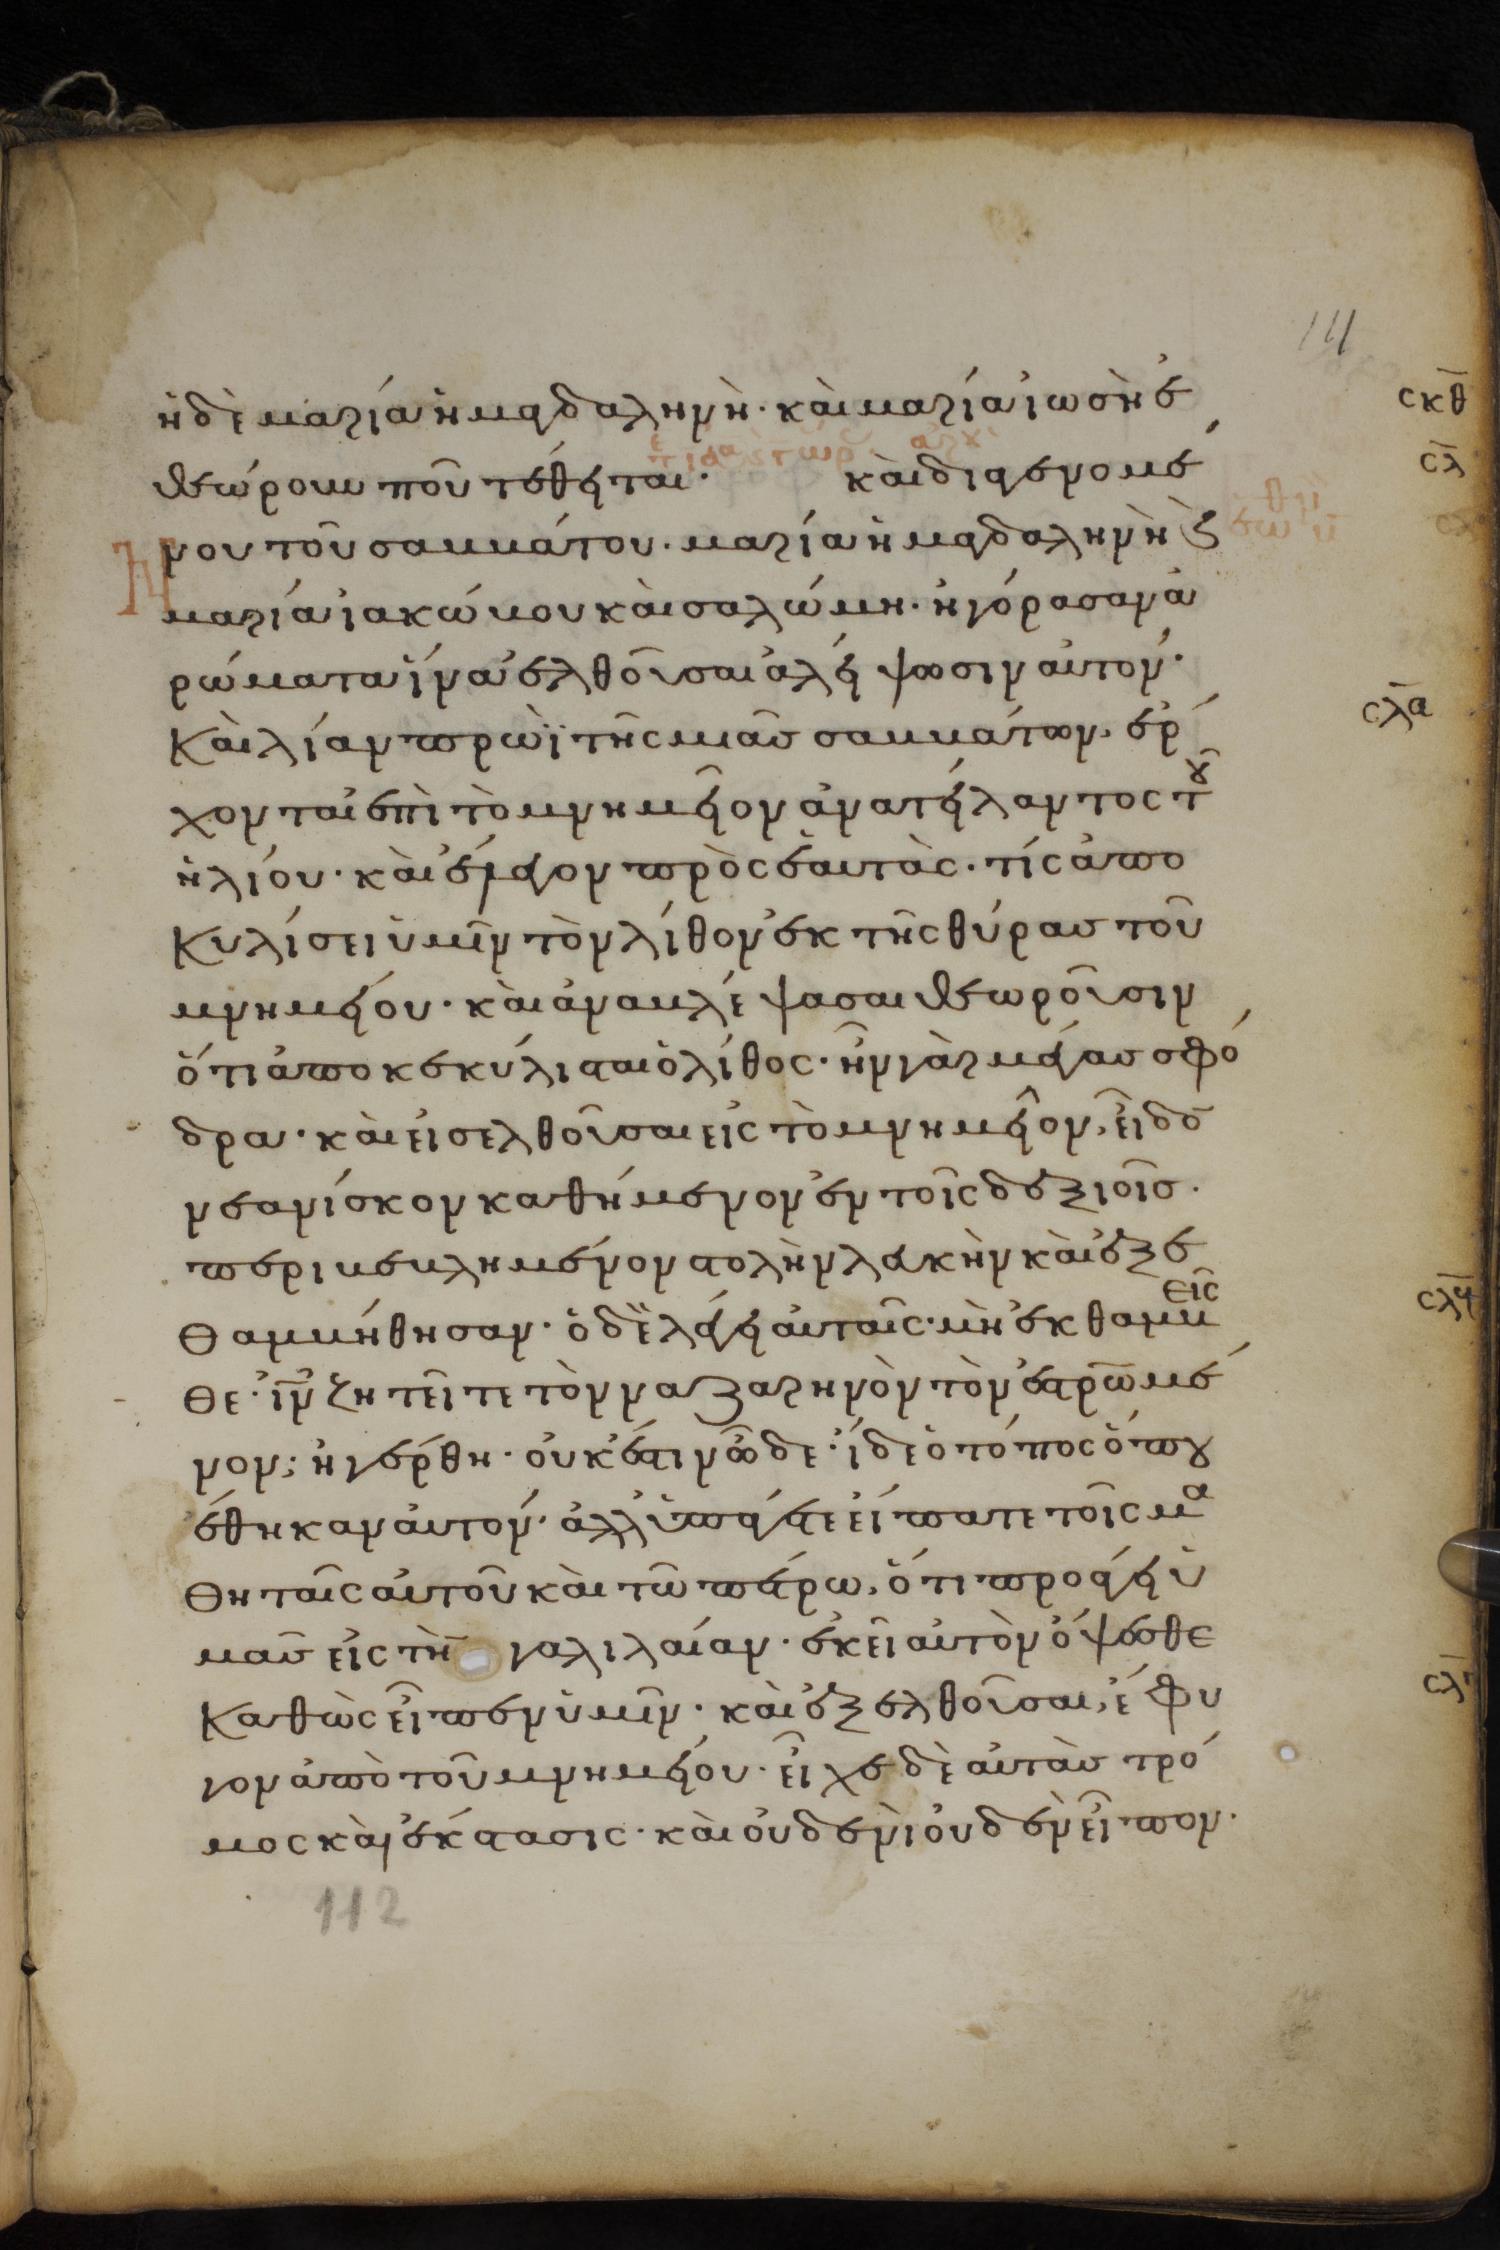 111
ἡ δὲ μαρία ἡ μαγδαληνὴ· καὶ μαρία ἰωσὴ ἐ
σκθ
θεώρουν ποῦ τέθειται· καὶ διαγενομέ
σλ
νου τοῦ σαββάτου· μαρία ἡ μαγδαληνὴ ϗ
μαρία ἰακώβου καὶ σαλώμη· ἠγόρασαν ἀ
ρώματα ἵνα ἐλθοῦσαι ἀλείψωσιν αὐτόν·
Καὶ λίαν πρωῒ τῆς μιᾶς σαββάτων, ἔρ
σλα
χονται ἐπὶ τὸ μνημεῖον ἀνατείλαντος τοῦ
ἡλίου· καὶ ἔλεγον πρὸς ἑαυτὰς· τίς ἀπο
Κυλίσει ἡμῖν τὸν λίθον ἐκ τῆς θύρας τοῦ
μνημείου· καὶ ἀναβλέψασαι θεωροῦσιν
ὅτι ἀποκεκύλισται ὁ λίθος· ἦν γὰρ μέγας σφό
δρα· καὶ εἰσελθοῦσαι εἰς τὸ μνημεῖον, εἶδο
νεανίσκον καθήμενον ἐν τοῖς δεξιοῖς·
περιβεβλημένον στολὴν λευκὴν καὶ ἐξε
Θαμβήθησαν· ὁ δὲ λέγει αὐταῖς· μὴ ἐκθαμβεῖς
σλβ
Θε· ἰν ζητεῖτε τὸν ναζαρηνὸν τὸν ἐσταρωμέ
νον; ἠγέρθη· οὐκ ἔστιν ὧδε· ἴδε ὁ τόπος ὅπου
ἔθηκαν αὐτόν· ἀλλ' ὑπάγετε εἴπατε τοῖς μα
Θηταῖς αὐτοῦ καὶ τῶ πέτρω, ὅτι προάγει ὑ
μᾶς εἰς τὴν γαλιλαίαν· ἐκεῖ αὐτὸν ὄψεσθε
Καθὼς εἶπεν ὑμῖν· καὶ ἐξελθοῦσαι, ἔφυ
γον ἀπὸ τοῦ μνημείου· εἶχε δὲ αὐτὰς τρό
μος καὶ ἔκστασις· καὶ οὐδενὶ οὐδὲν εἶπον·
112